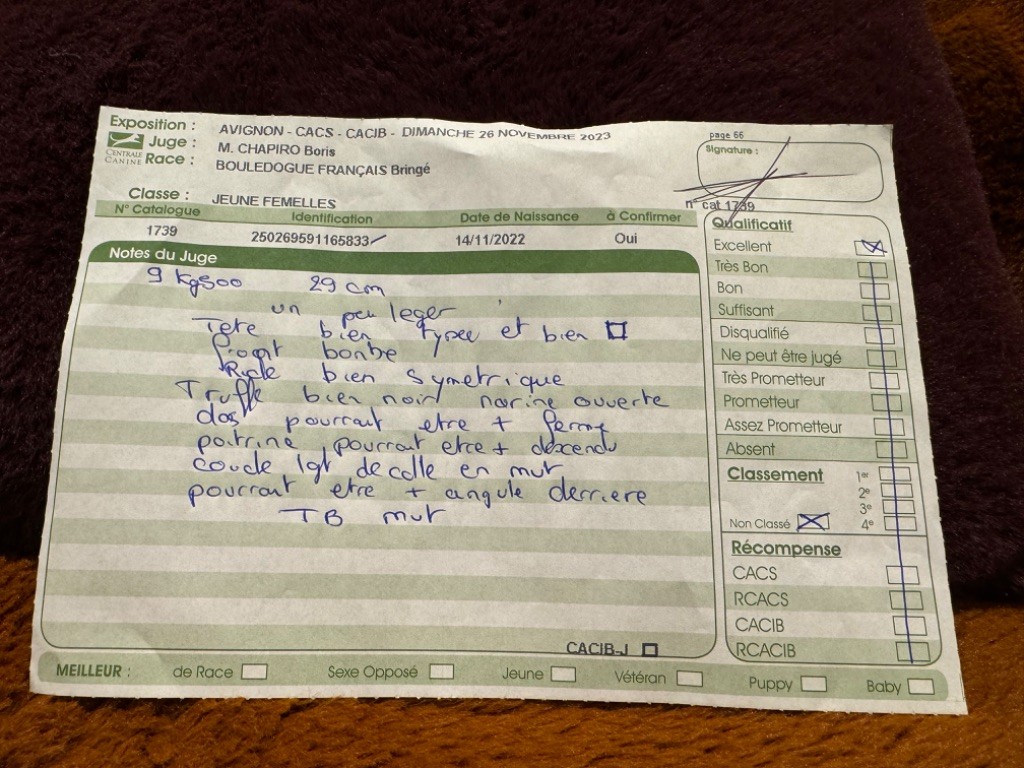 Exposition : AVIGNON - CACS - CACIB - DIMANCHE 26 NOVEMBRE 2023
page 66
CENTRALE CANINE
Juge : M. CHAPIRO Boris
Signature :
Race : BOULEDOGUE FRANÇAIS Bringé
Classe : JEUNE FEMELLES
n° cat 1739
N° Catalogue Identification Date de Naissance à Confirmer
1739 250269591165833 14/11/2022 Oui
Notes du Juge
9 Kg500 29 cm
un peu leger
Tete bien typee et bien
Front bombe
Ride bien symetrique
Truffe bien noir narine ouverte
dos pourrait etre + ferme
poitrine pourrait etre + descendu
coude lgt de colle en mvt
pourrait etre + angule derriere
TB mvt
CACIB-J
Qualificatif
Excellent
Très Bon
Bon
Suffisant
Disqualifié
Ne peut être jugé
Très Prometteur
Prometteur
Assez Prometteur
Absent
Classement 1er
2e
3e
Non Classé 4e
Récompense
CACS
RCACS
CACIB
RCACIB
MEILLEUR : de Race Sexe Opposé Jeune Vétéran Puppy Baby